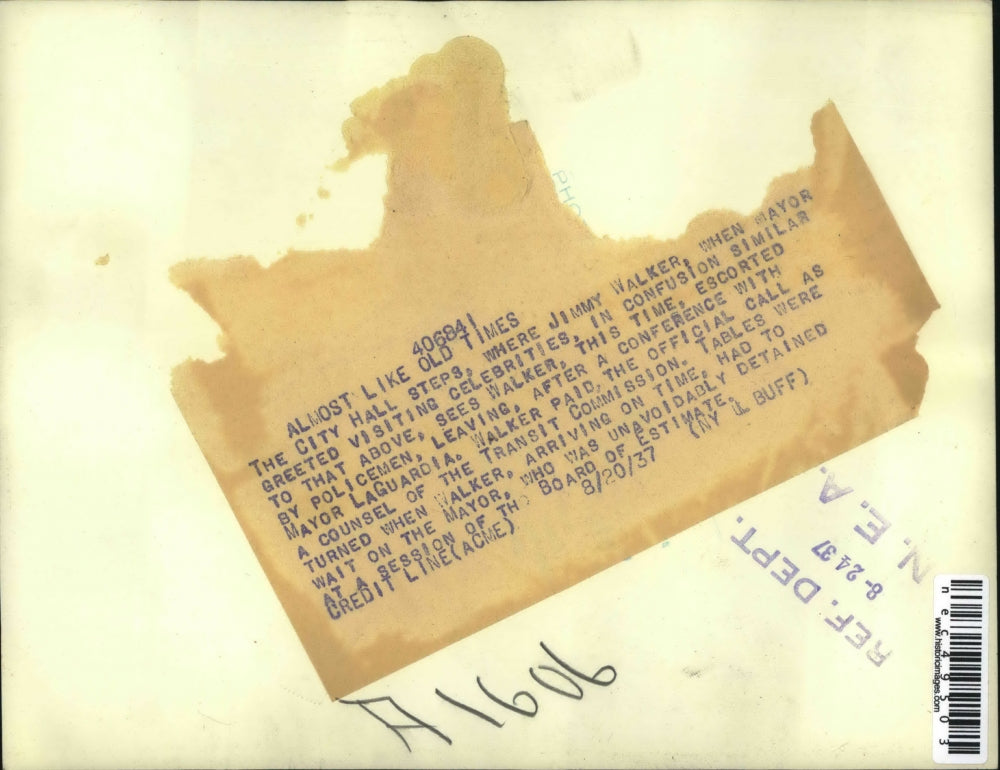 PHO
406841
ALMOST LIKE OLD TIMES
THE CITY HALL STEPS, WHERE JIMMY WALKER, WHEN MAYOR
GREETED VISITING CELEBRITIES, IN CONFUSION SIMILAR
TO THAT ABOVE, SEES WALKER, THIS TIME, ESCORTED
BY POLICEMEN, LEAVING, AFTER A CONFERENCE WITH
MAYOR LAGUARDIA. WALKER PAID THE OFFICIAL CALL AS
A COUNSEL OF THE TRANSIT COMMISSION. TABLES WERE
TURNED WHEN WALKER, ARRIVING ON TIME, HAD TO
WAIT ON THE MAYOR, WHO WAS UNAVOIDABLY DETAINED
AT A SESSION OF TH BOARD OF ESTIMATE.
CREDIT LINE(ACME) 8/20/37 (NY BUFF)
REF. DEPT.
8-24 37
N. E. A.
A 1606
www.historicimages.com
nec49503